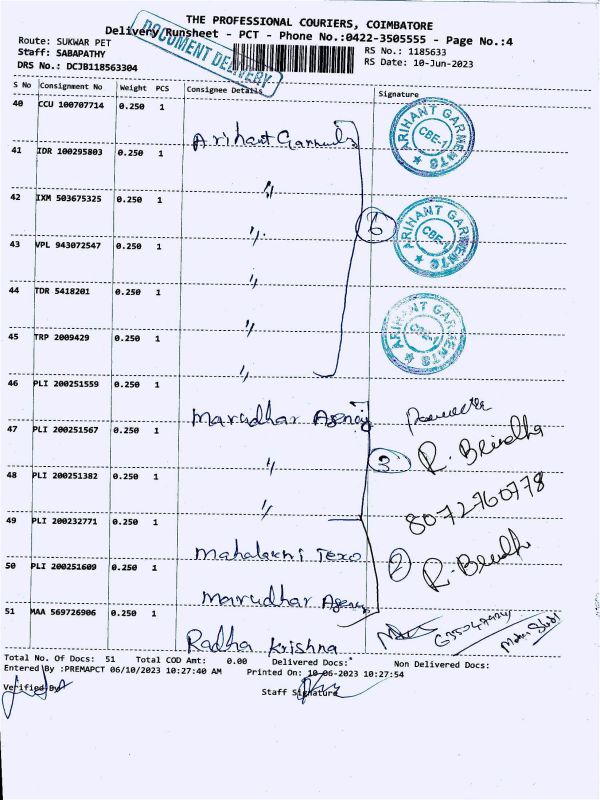 THE PROFESSIONAL COURIERS, COIMBATORE
Delivery Runsheet - PCT - Phone No.:0422-3505555 - Page No.:4
Route: SUKWAR PET
Staff: SABAPATHY
DRS No.: DCJB118563304
DOCUMENT DELIVERY
RS No.: 1185633
RS Date: 10-Jun-2023
S No Consignment No Weight PCS Consignee Details Signature
40 CCU 100707714 0.250 1
Arihant Garments
ARIHANT GARMENTS
CBE-1
41 IDR 100295803 0.250 1
"
42 IXM 503675325 0.250 1
"
6
ARIHANT GARMENTS
CBE-1
43 VPL 943072547 0.250 1
"
44 TDR 5418201 0.250 1
"
ARIHANT GARMENTS
CBE-1
45 TRP 2009429 0.250 1
"
46 PLI 200251559 0.250 1
Marudhar Agency
47 PLI 200251567 0.250 1
"
3
R. Brindha
48 PLI 200251382 0.250 1
"
8072760778
49 PLI 200232771 0.250 1
Mahalaxmi Texo
2
50 PLI 200251609 0.250 1
Marudhar Agency
51 MAA 569726906 0.250 1
Radha Krishna
Total No. Of Docs: 51 Total COD Amt: 0.00 Delivered Docs: Non Delivered Docs:
Entered By :PREMAPCT 06/10/2023 10:27:40 AM Printed On: 10-06-2023 10:27:54
Verified By Staff Signature